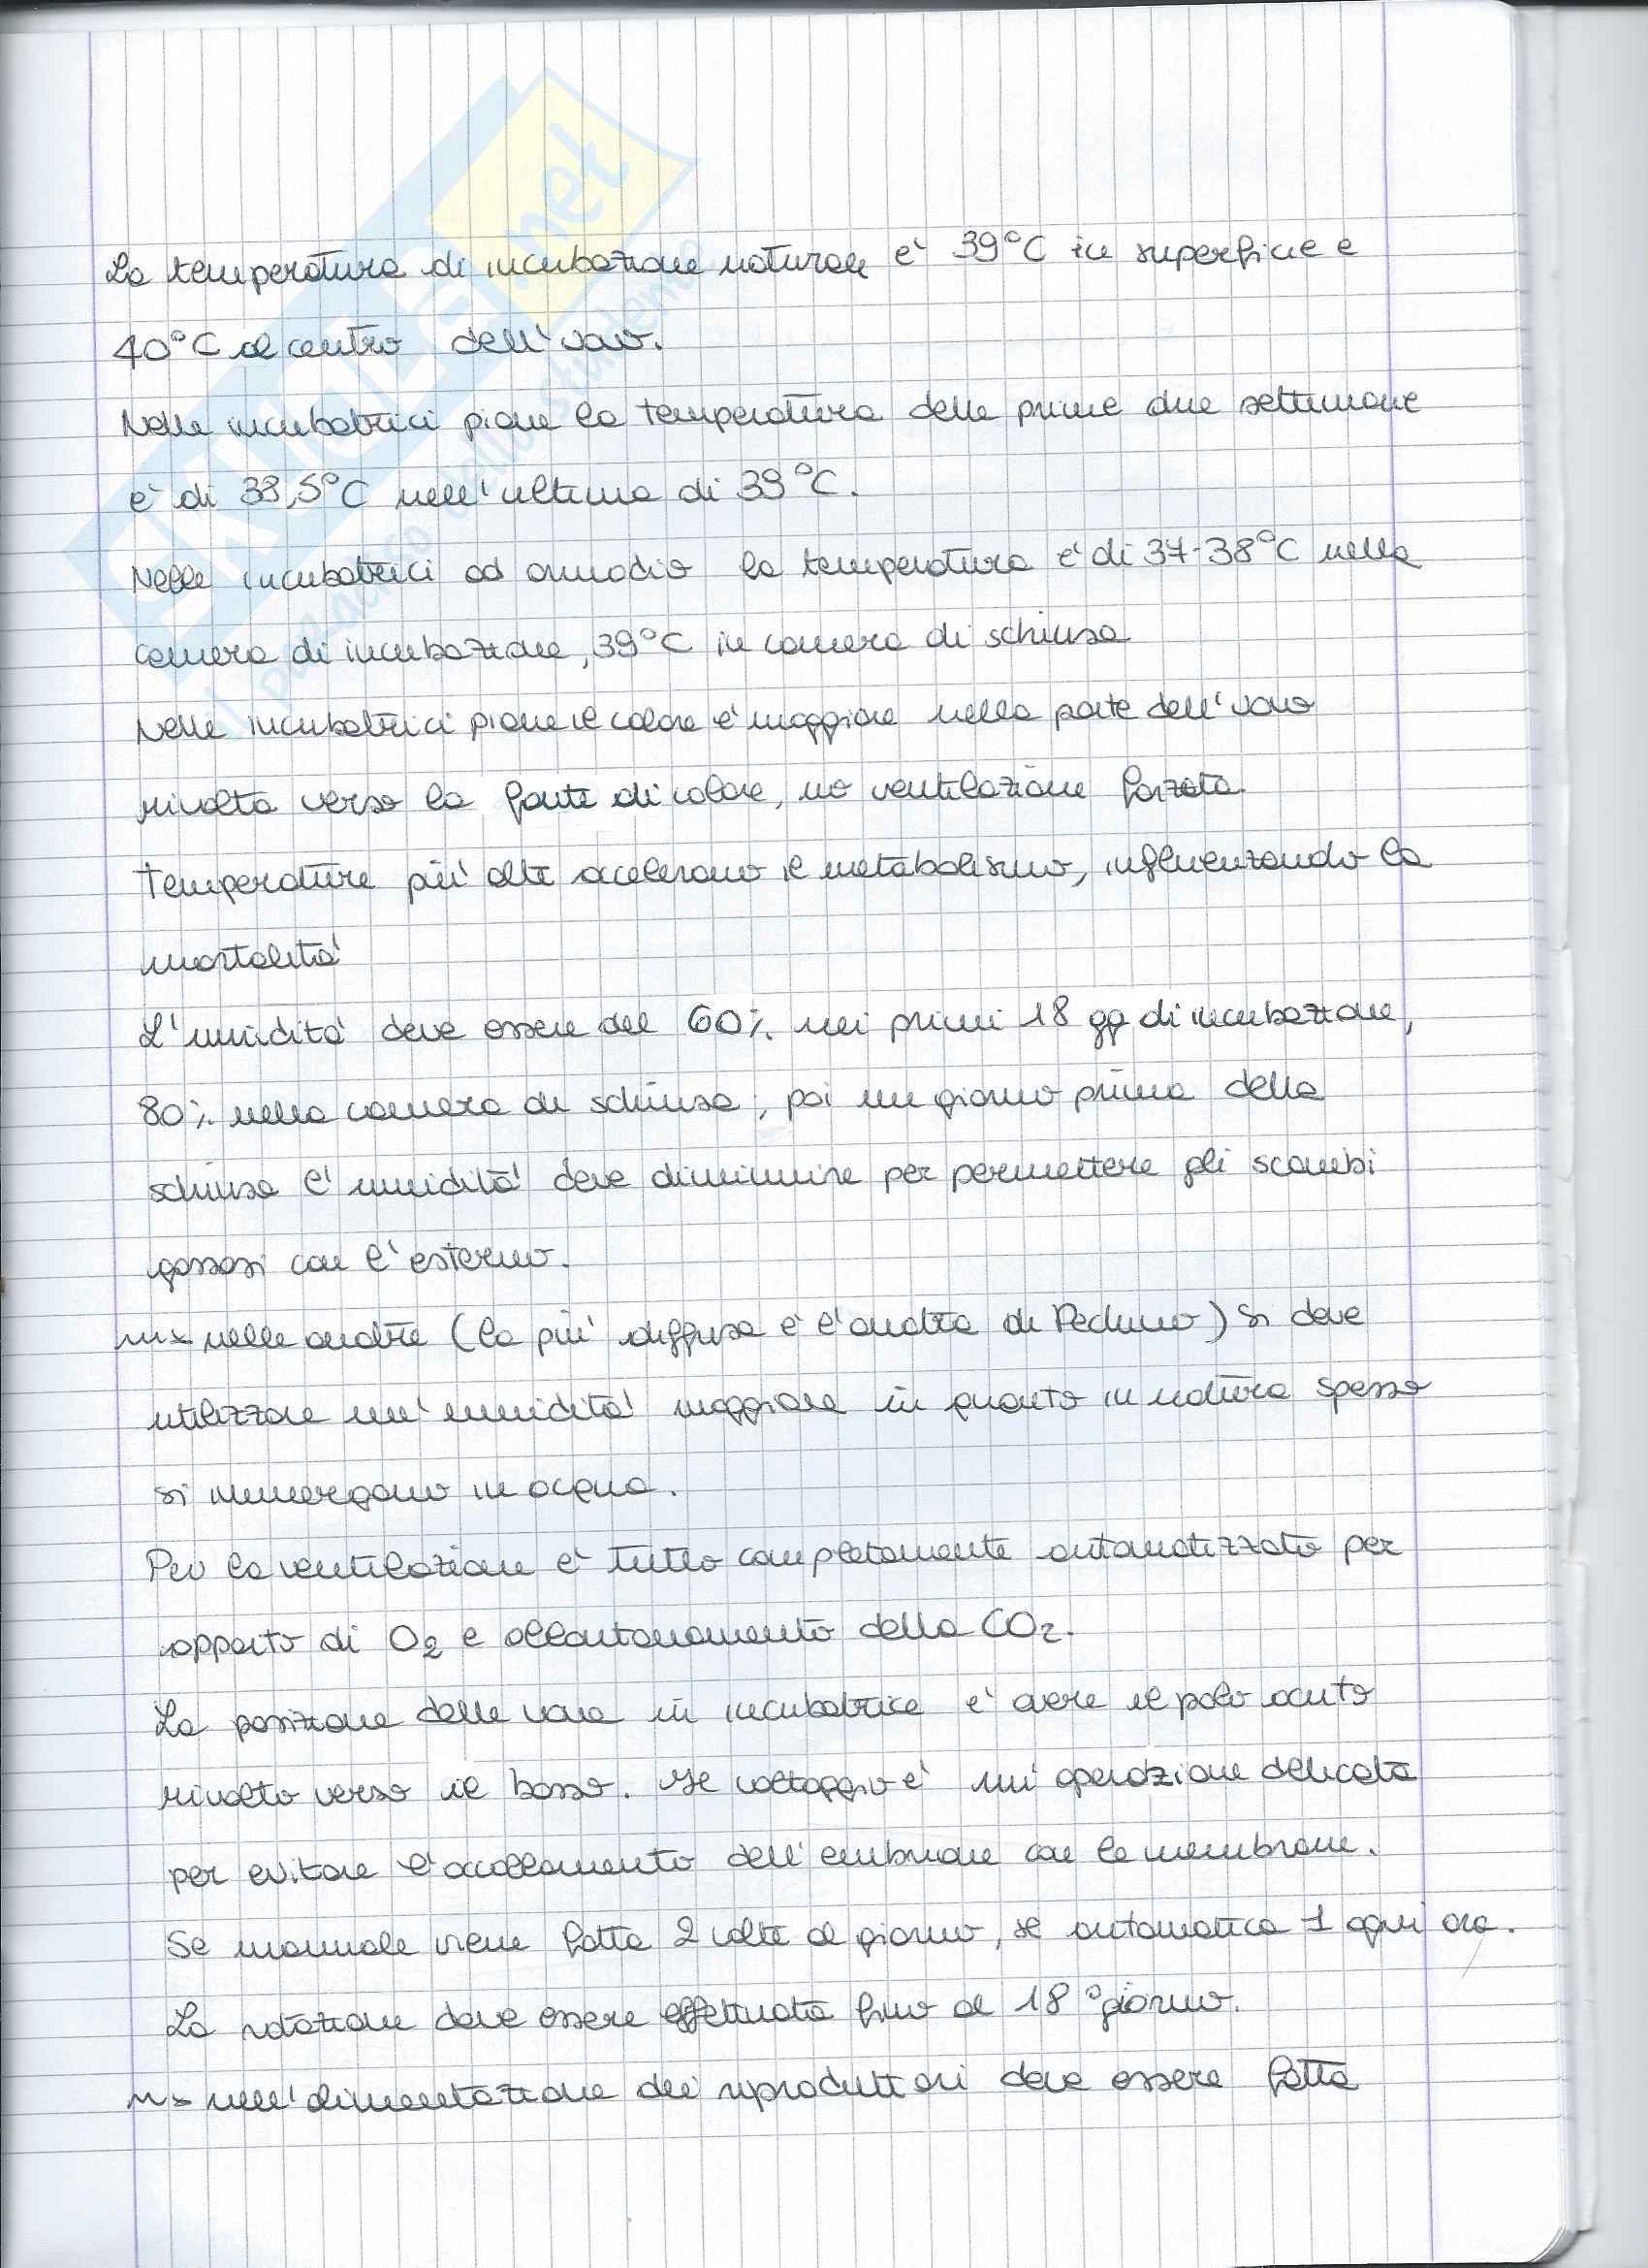 La temperatura di incubazione naturale e' 39°C in superficie e
40°C al centro dell'uovo.
Nelle incubatrici piane la temperatura delle prime due settimane
e' di 38,5°C nell'ultima di 39°C.
Nelle incubatrici ad armadio la temperatura e' di 37-38°C nella
camera di incubazione, 39°C in camera di schiusa
Nelle incubatrici piane il calore e' maggiore nella parte dell'uovo
rivolta verso la fonte di calore, no ventilazione forzata.
Temperature piu' alte accelerano il metabolismo, influenzando la
mortalita'
L'umidita' deve essere del 60% nei primi 18 gg di incubazione,
80% nella camera di schiusa, poi un giorno prima della
schiusa l'umidita' deve diminuire per permettere gli scambi
gassosi con l'esterno.
nelle anatre (la piu' diffusa e' l'anatra di Pechino) si deve
utilizzare un'umidita' maggiore in quanto in natura spesso
si immergono in acqua.
Per la ventilazione e' tutto completamente automatizzato per
apporto di O2 e allontanamento della CO2.
La posizione delle uova in incubatrice e' avere il polo acuto
rivolto verso il basso. Il voltaggio e' un'operazione delicata
per evitare l'accollamento dell'embrione con le membrane.
Se manuale viene fatta 2 volte al giorno, se automatica 1 ogni ora.
La rotazione deve essere effettuata fino al 18° giorno.
nell'alimentazione dei riproduttori deve essere fatta
SKUOLA.net
il paradiso dello studente